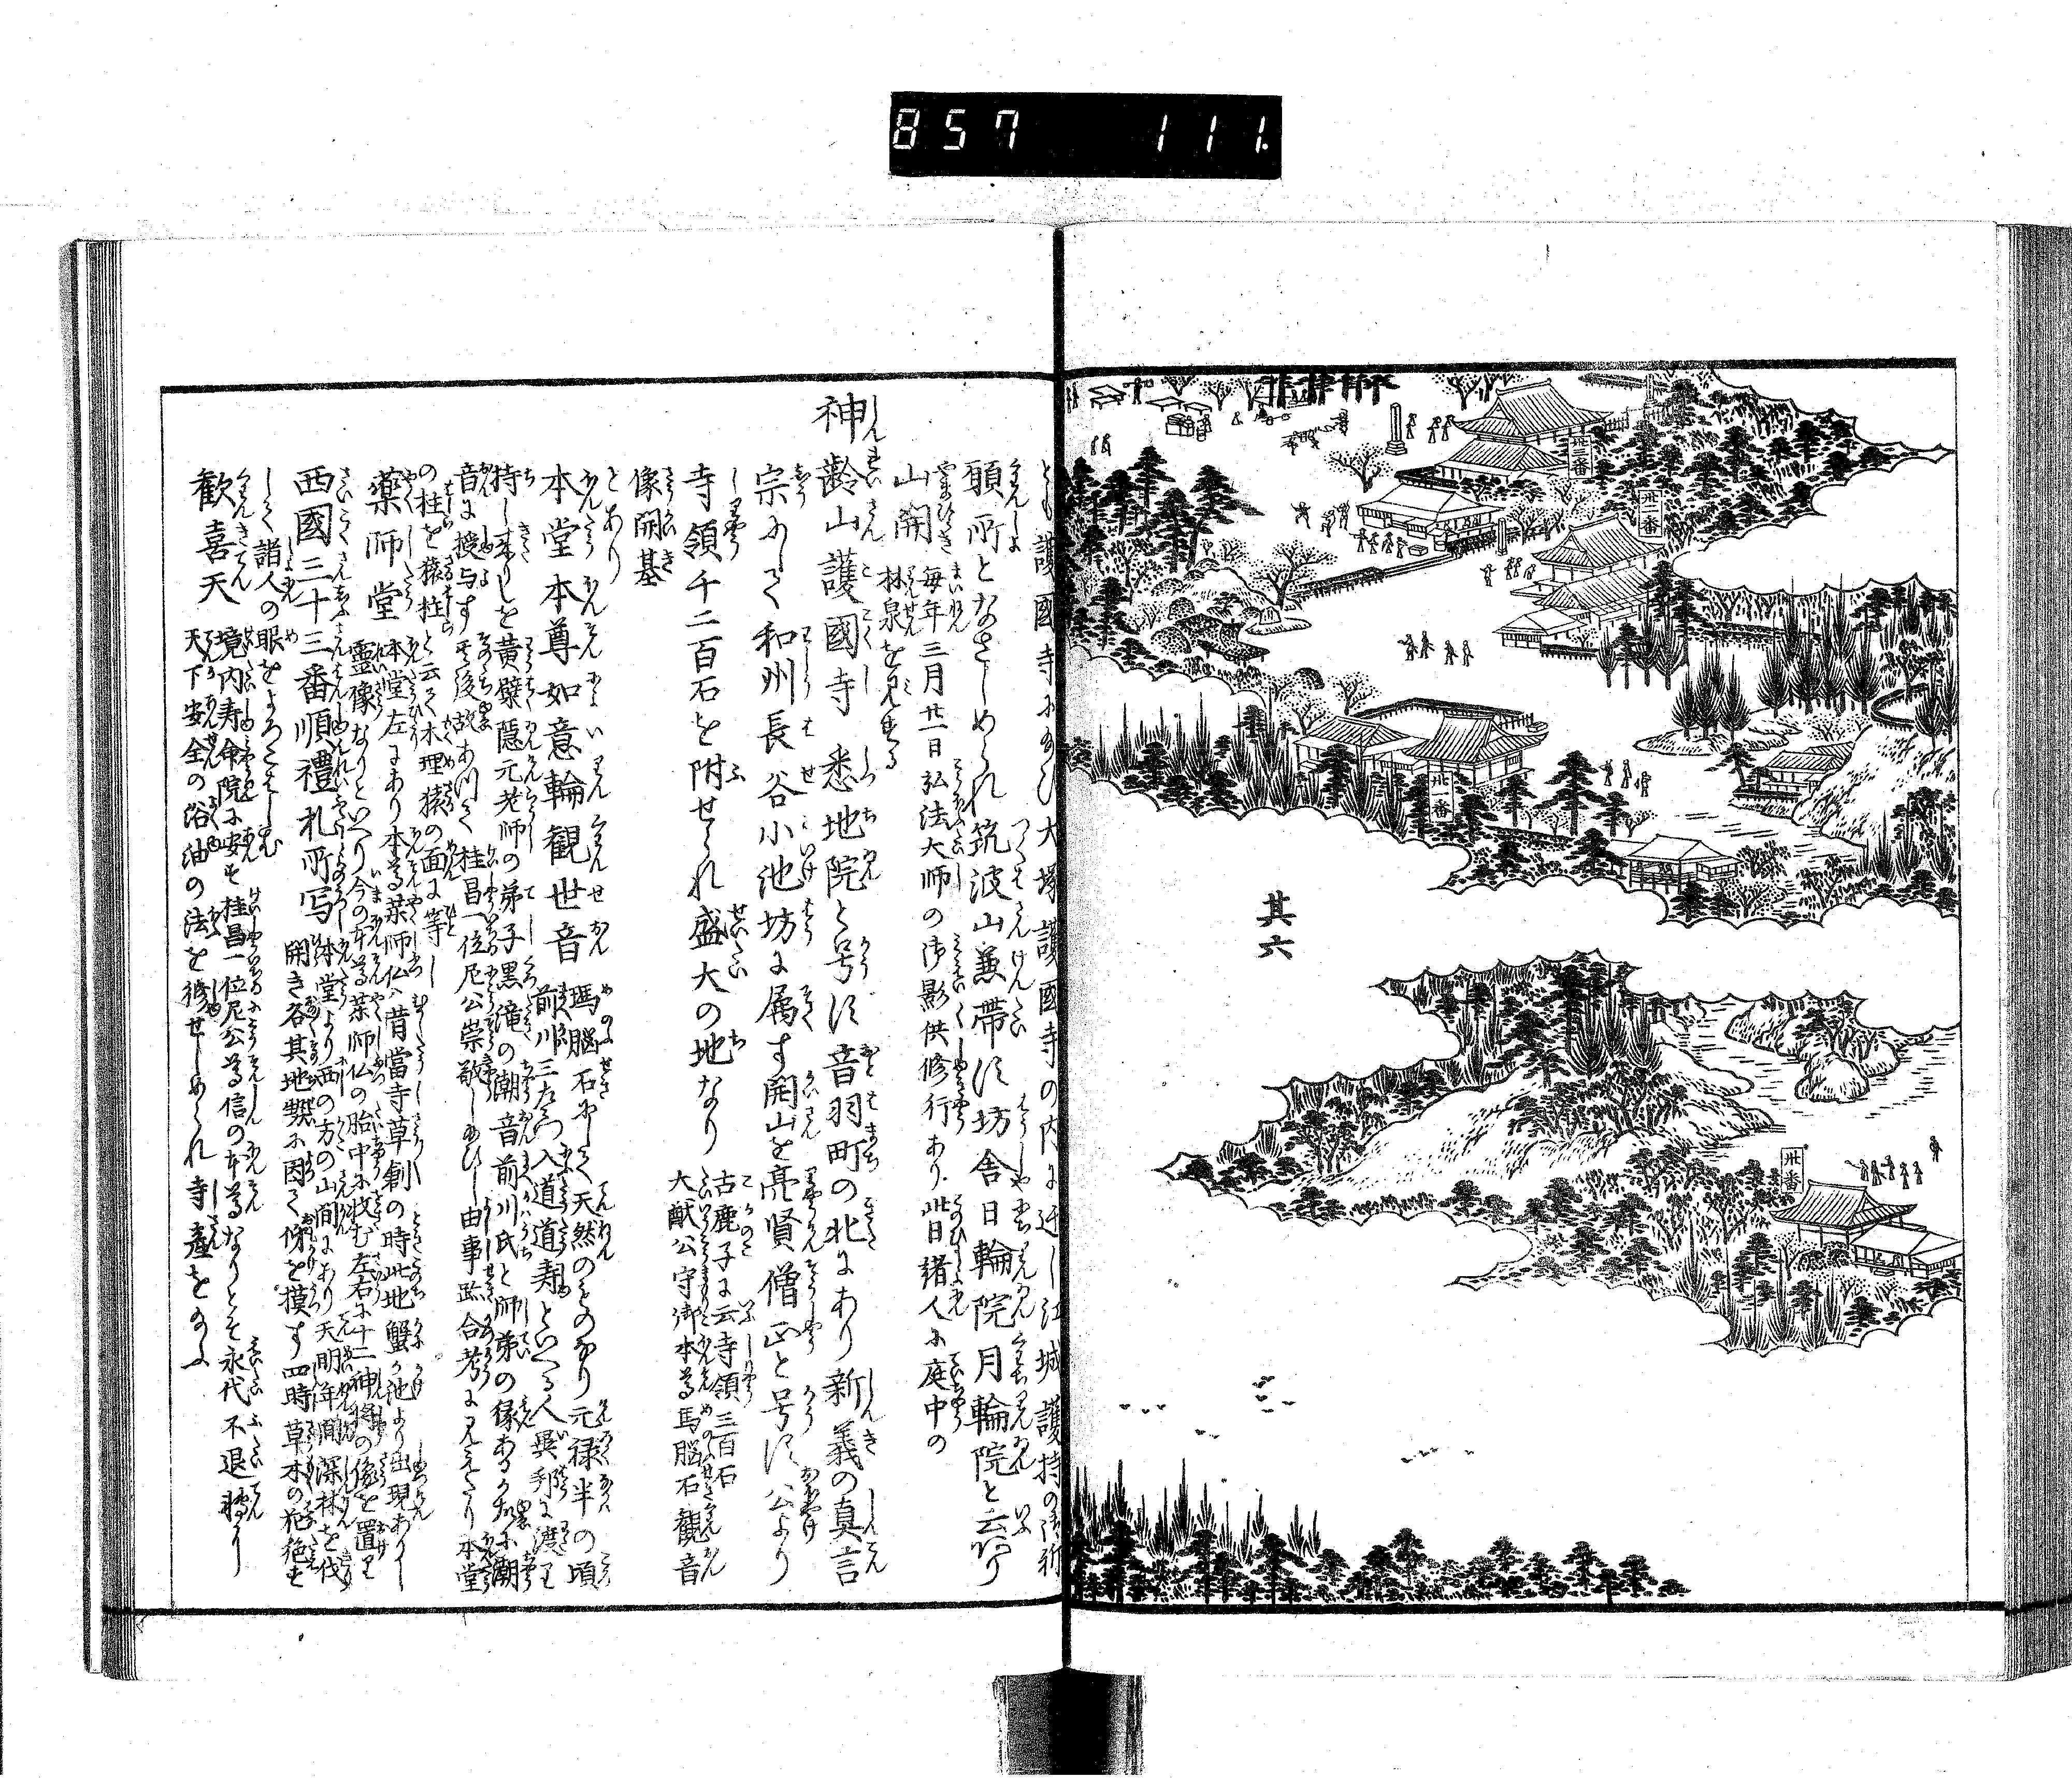 857 111.
卅三番
卅二番
卅一番
其六
卅番
願所となさしめられ筑波山兼帯す坊舎日輪院月輪院と云り
山開 毎年三月廿一日弘法大師の御影供修行あり此日諸人に庭中の
林泉を見せる
神齢山護國寺 悉地院と号す音羽町の北にあり新義の真言
宗にして和州長谷小池坊に属す開山を亮賢僧正と号す公より
寺領千二百石を附せられ盛大の地なり
古鹿子に云寺領三百石
大猷公守御本尊馬脳石観音
像開基
とあり
本堂本尊如意輪観世音
瑪脳石にして天然のものなり元禄半の頃
前川三左衛門入道道寿といへる人異邦に渡り
持し来りしを黄檗隠元老師の弟子黒滝の潮音前川氏と師弟の縁あるか故に潮
音に授与す其後故ありて桂昌一位尼公崇敬し給ひし由事跡合考に見えたり本堂
の柱を猿柱と云て木理猿の面に等し
薬師堂
本堂左にあり本尊薬師仏は昔當寺草創の時此地蟹か池より出現ありし
霊像なりといへり今の本尊薬師仏の胎中に収む左右に十二神将の像を置り
西國三十三番順禮札所写
本堂より西の方の山間にあり天明年間深林を伐
開き各其地勢に因て俤を摸す四時草木の花絶す
して諸人の眼をよろこはしむ
歓喜天
境内寿命院に安す桂昌一位尼公尊信の本尊なりとそ永代不退転に
天下安全の浴油の法を修せしめられ寺産をのふ